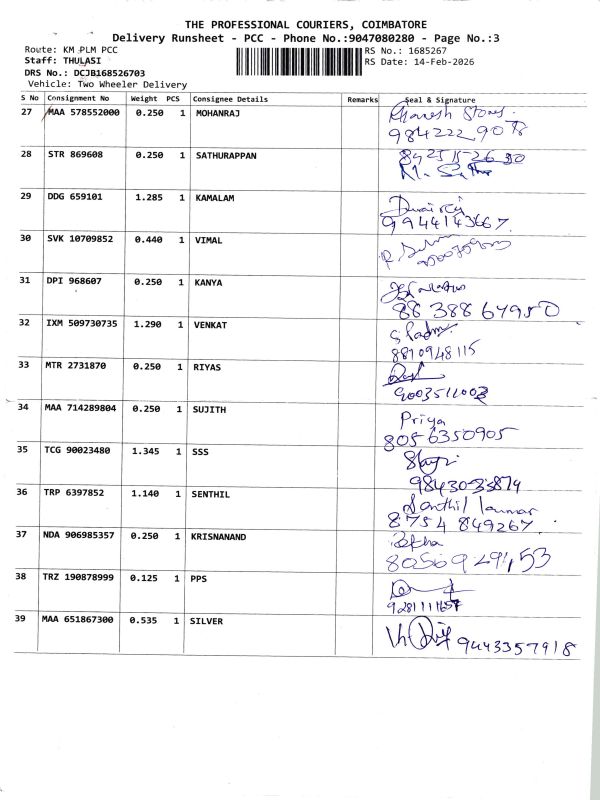 THE PROFESSIONAL COURIERS, COIMBATORE
Delivery Runsheet - PCC - Phone No.:9047080280 - Page No.:3
Route: KM PLM PCC
RS No.: 1685267
Staff: THULASI
RS Date: 14-Feb-2026
DRS No.: DCJB168526703
Vehicle: Two Wheeler Delivery
S No Consignment No Weight PCS Consignee Details Remarks Seal & Signature
27 MAA 578552000 0.250 1 MOHANRAJ
28 STR 869608 0.250 1 SATHURAPPAN
29 DDG 659101 1.285 1 KAMALAM
9944143667
30 SVK 10709852 0.440 1 VIMAL
31 DPI 968607 0.250 1 KANYA
88388 67950
32 IXM 509730735 1.290 1 VENKAT
8870948115
33 MTR 2731870 0.250 1 RIYAS
9003511003
34 MAA 714289804 0.250 1 SUJITH
Priya
8056350905
35 TCG 90023480 1.345 1 SSS
36 TRP 6397852 1.140 1 SENTHIL
8754 849267
37 NDA 906985357 0.250 1 KRISNANAND
38 TRZ 190878999 0.125 1 PPS
39 MAA 651867300 0.535 1 SILVER
9443357918